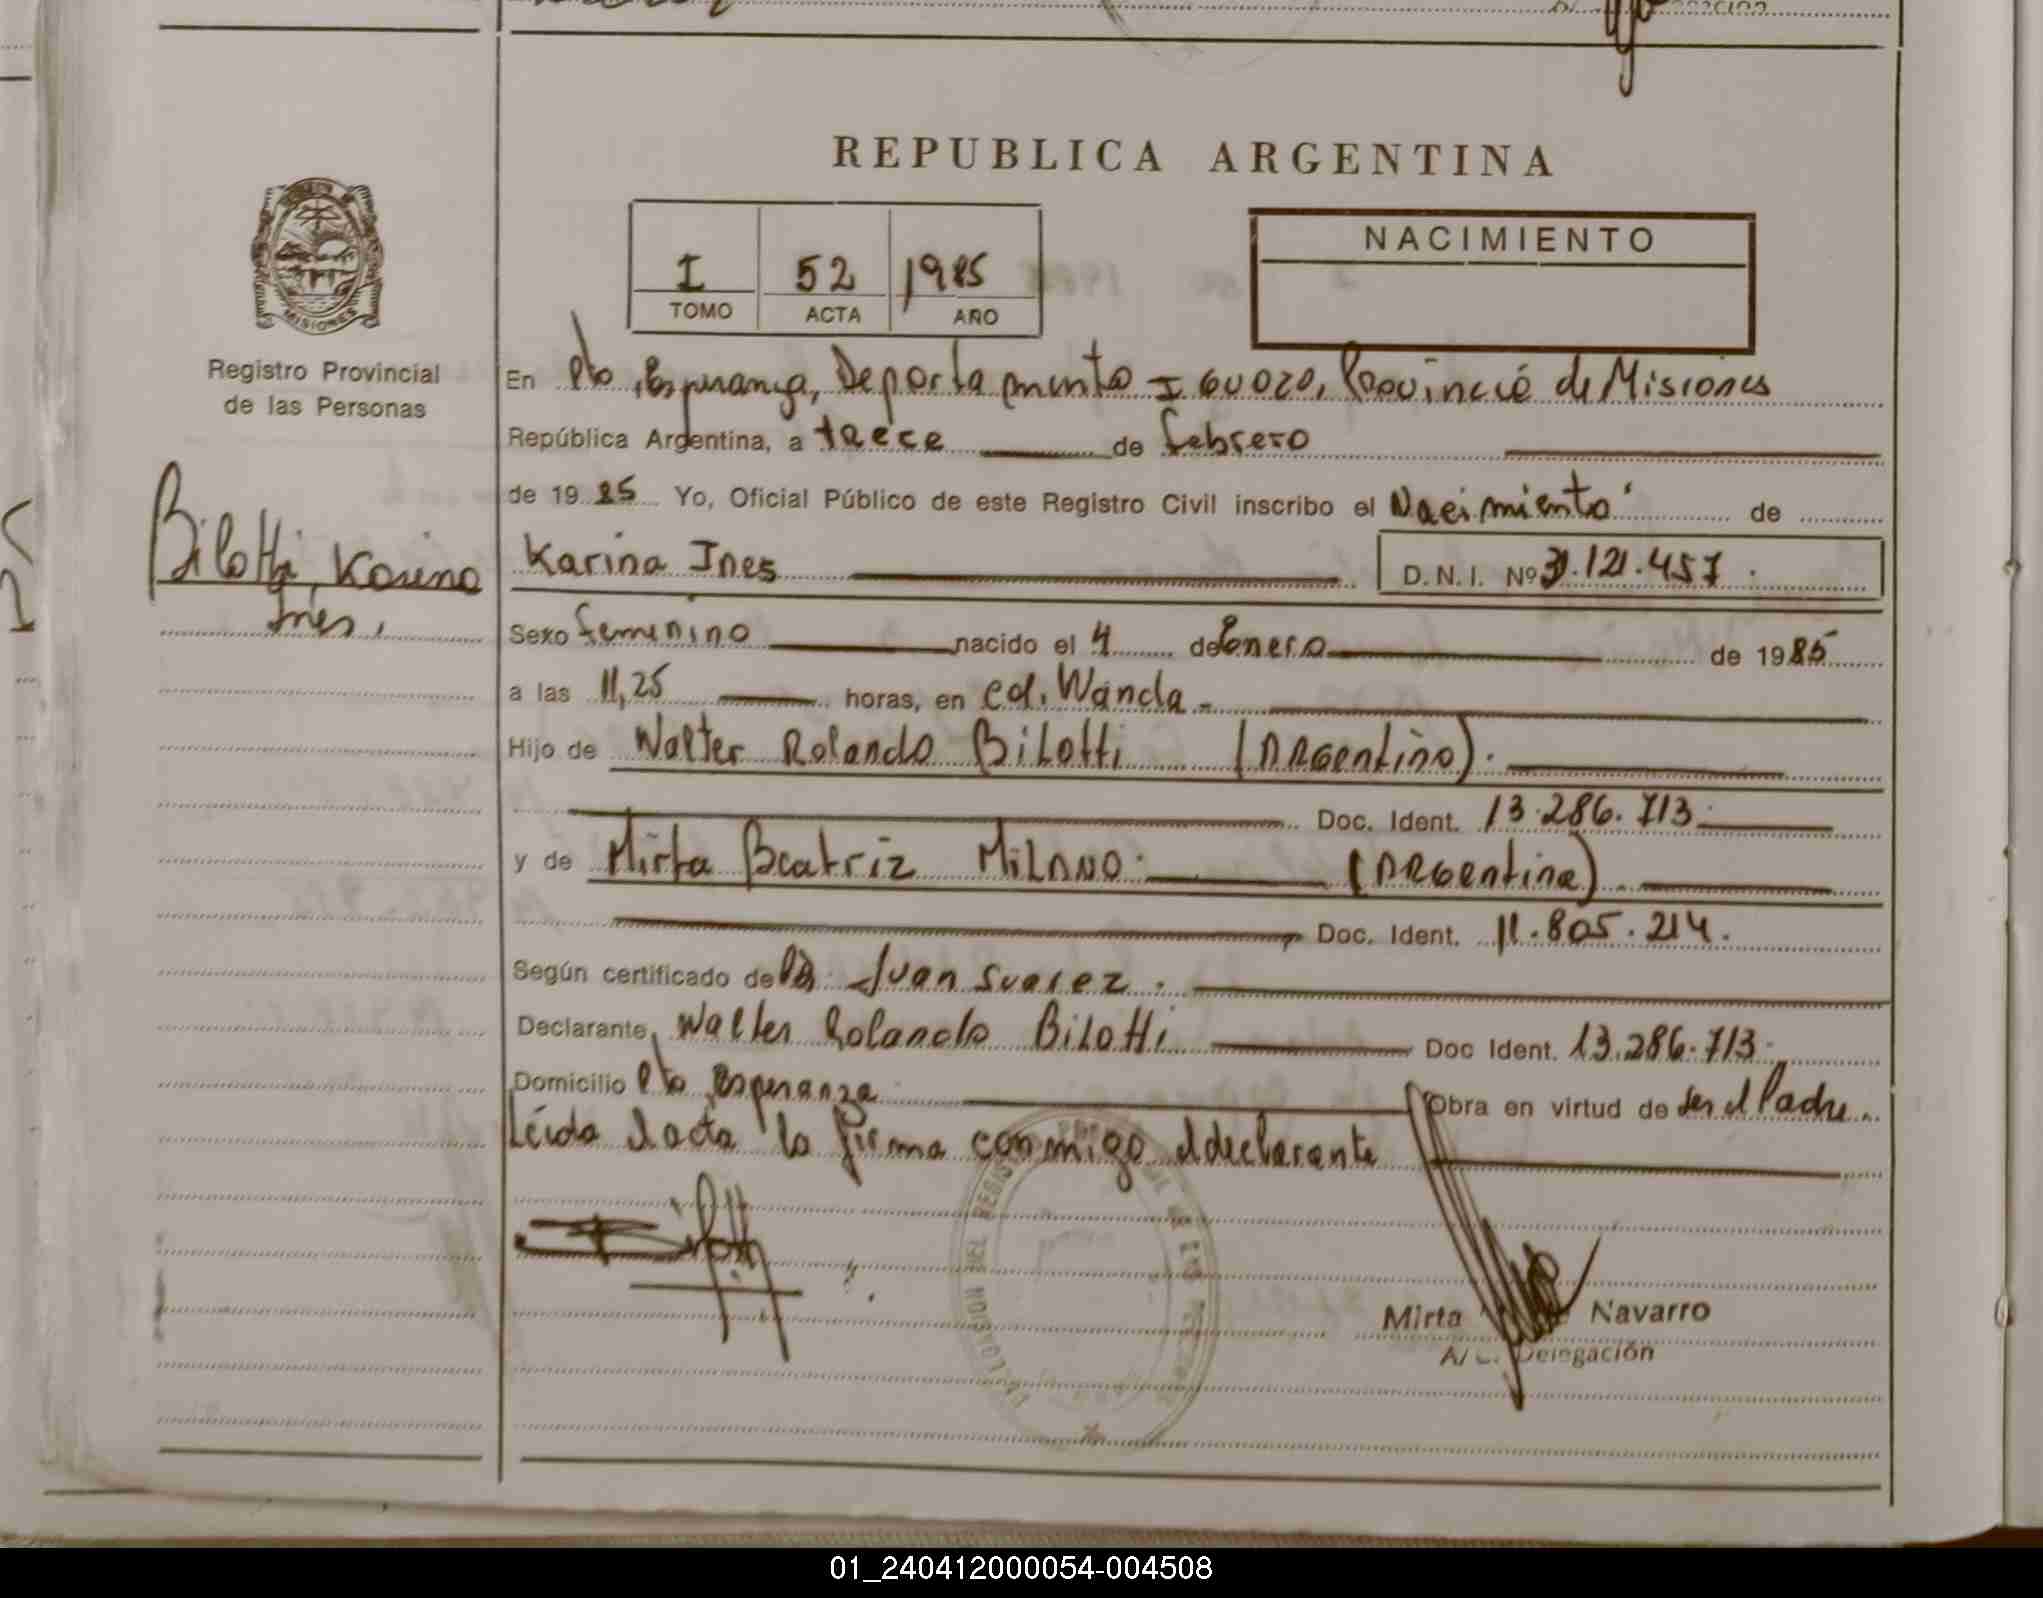 REPUBLICA ARGENTINA
I 52 1985
TOMO ACTA AÑO
NACIMIENTO
MISIONES
Registro Provincial
de las Personas
Bilotti Karina
Ines.
En Pto Esperanza, Departamento Iguazu, Provincia de Misiones
República Argentina, a trece de febrero
de 19 85 Yo, Oficial Público de este Registro Civil inscribo el Nacimiento de
Karina Ines D.N.I. Nº 31.121.457.
Sexo femenino nacido el 4 de Enero de 1985
a las 11,25 horas, en Cd. Wanda -
Hijo de Walter Rolando Bilotti (Argentino).
Doc. Ident. 13.286.713
y de Mirta Beatriz Milano (Argentina)
Doc. Ident. 11.805.214.
Según certificado de Juan Suarez.
Declarante, Walter Rolando Bilotti Doc Ident. 13.286.713.
Domicilio Pto Esperanza Obra en virtud de ser el Padre.
Leida el acta la firma conmigo el declarante
Bilotti
Mirta Navarro
A/C. Delegación
01_240412000054-004508